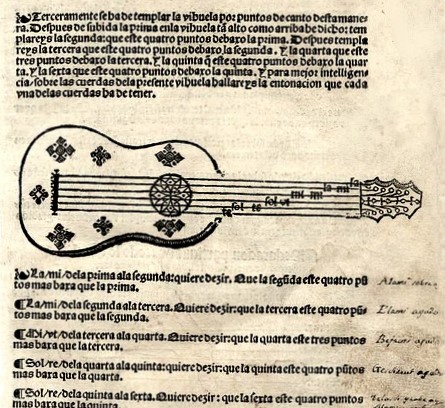 Terceramente se ha de templar la vihuela por puntos de canto desta mane
ra. Despues de subida la prima enla vihuela tã alto como arriba de dicho: tem
plareys la segunda: que este quatro puntos debaxo la prima. Despues templa
reys la tercera que este quatro puntos debaxo la segunda. Y la quarta que este
tres puntos debaxo la tercera. Y la quinta q̃ este quatro puntos debaxo la quar
ta. Y la sexta que este quatro puntos debaxo la quinta. Y para mejor intelligen
cia/sobre las cuerdas dela presente vihuela hallareys la entonacion que cada
vna delas cuerdas ha de tener.
re sol re sol vt mi mi la mi la
La/mi/dela prima ala segunda: quiere dezir. Que la segũda este quatro pũ
tos mas bara que la prima.
¶La/mi/dela segunda ala tercera. Quiere dezir: que la tercera este quatro pũ
tos mas bara que la segunda.
¶Mi/vt/dela tercera ala quarta. Quiere dezir: que la quarta este tres puntos
mas bara que la tercera.
¶Sol/re/dela quarta ala quinta: quiere dezir: que la quinta este quatro pũtos
mas bara que la quarta.
¶Sol/re/dela quinta ala sexta. Quiere dezir: que la sexta este quatro puntos
mas bara que la quinta.